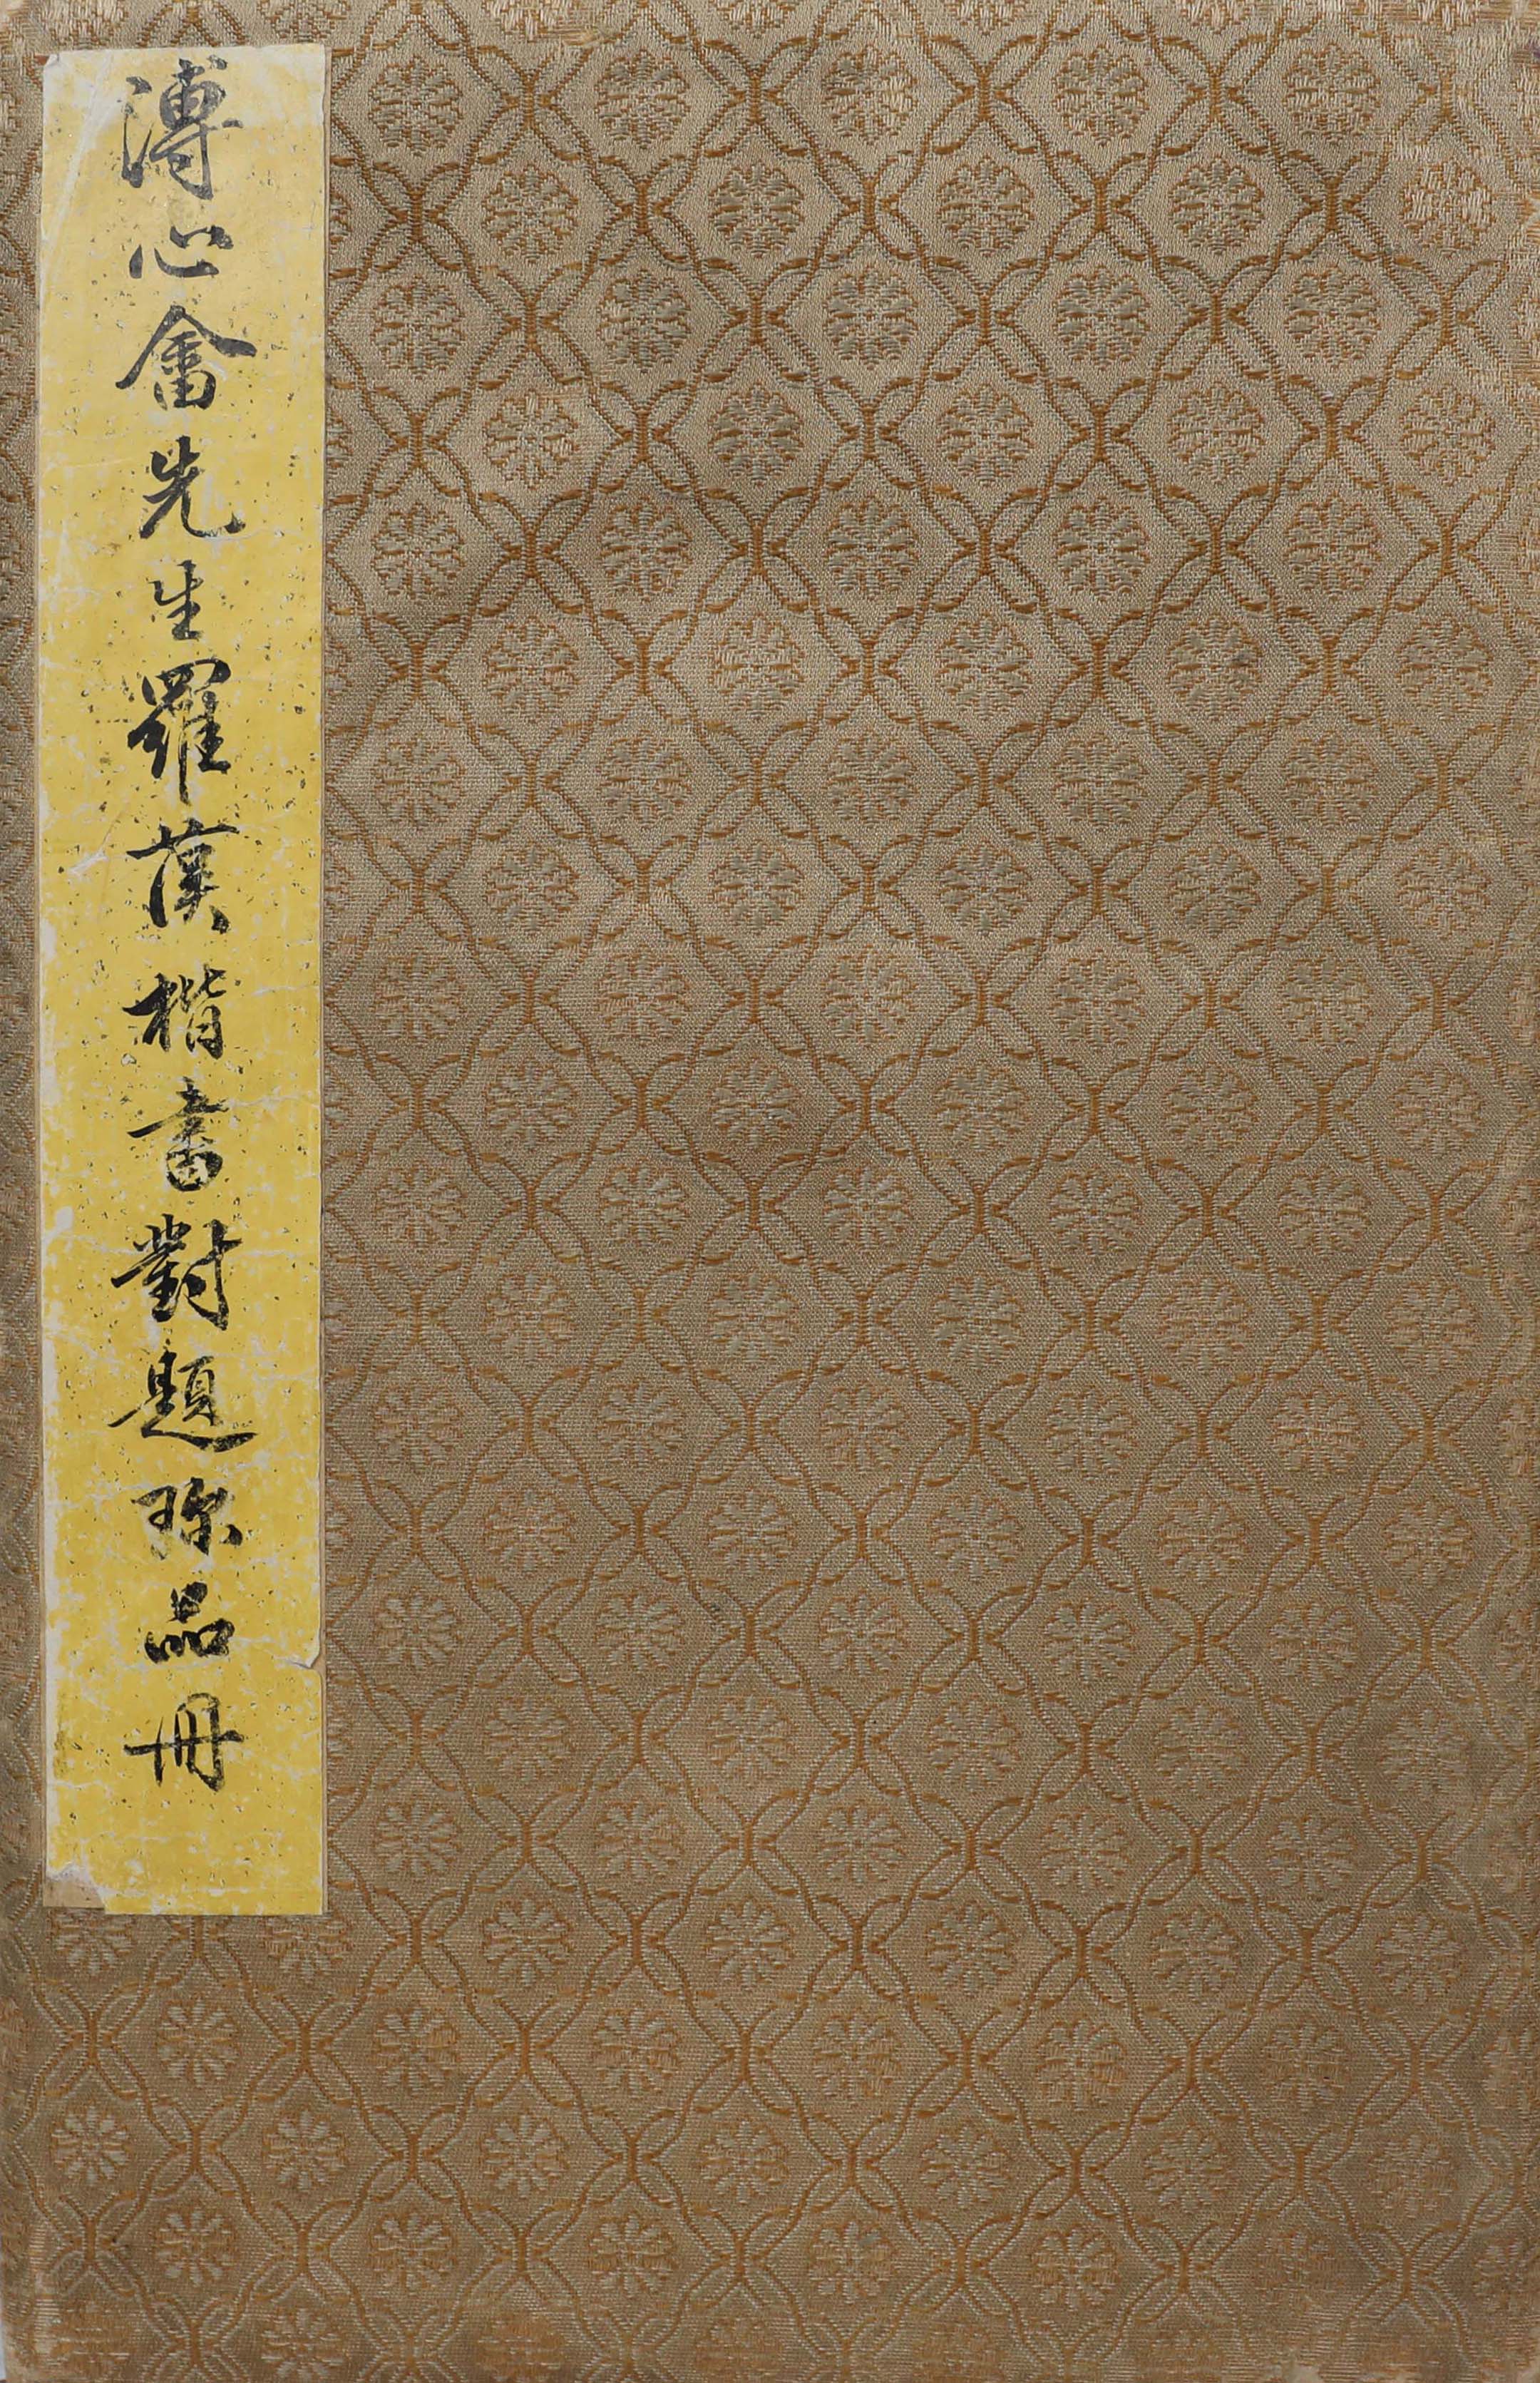 溥心畬先生羅漢楷書對題珍品冊